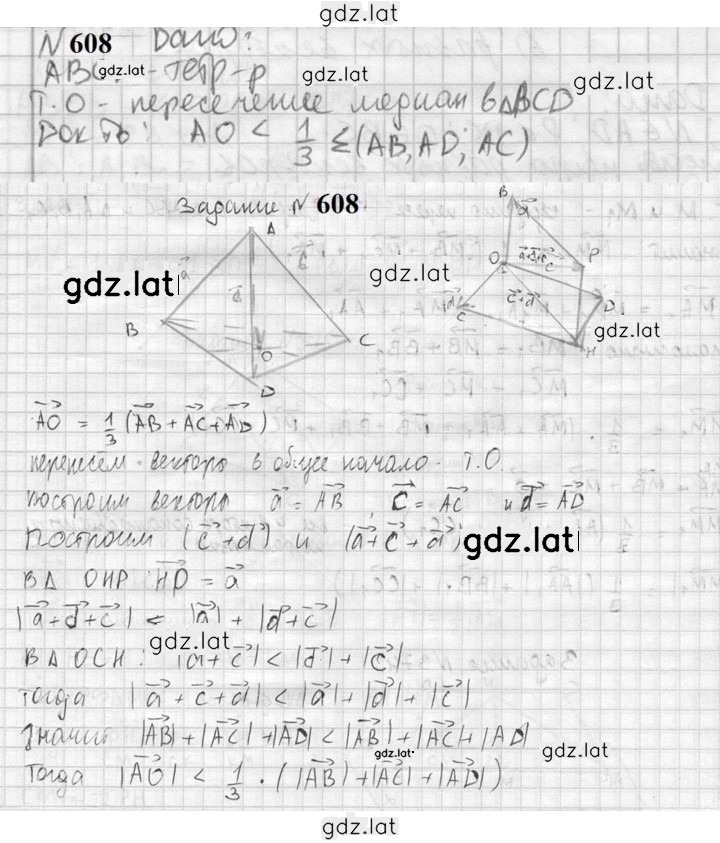 gdz.lat
N 608 Дано:
ABC gdz.lat - тетр-р
gdz.lat
Т.О - пересечение медиан в ΔBCD
Док-ть: AO < 1/3 Σ(AB, AD; AC)
Задание N 608
B
A
a
a
gdz.lat
O
a+d+c
P
gdz.lat
d
c+d
D
B
C
gdz.lat
O
C
D
H
AO = 1/3 (AB + AC + AD)
перенесем вектора в общее начало - т.О.
построим вектора a = AB, c = AC и d = AD
построим (c + d) и (a + c + d)
gdz.lat
В Δ OHP: HD = a
|a + d + c| < |a| + |d + c|
gdz.lat
В Δ OCH: |a + c| < |d| + |c|
тогда |a + c + d| < |a| + |d| + |c|
значит |AB| + |AC| + |AD| < |AB| + |AC| + |AD|
gdz.lat
gdz.lat
Тогда |AO| < 1/3 · (|AB| + |AC| + |AD|)
gdz.lat